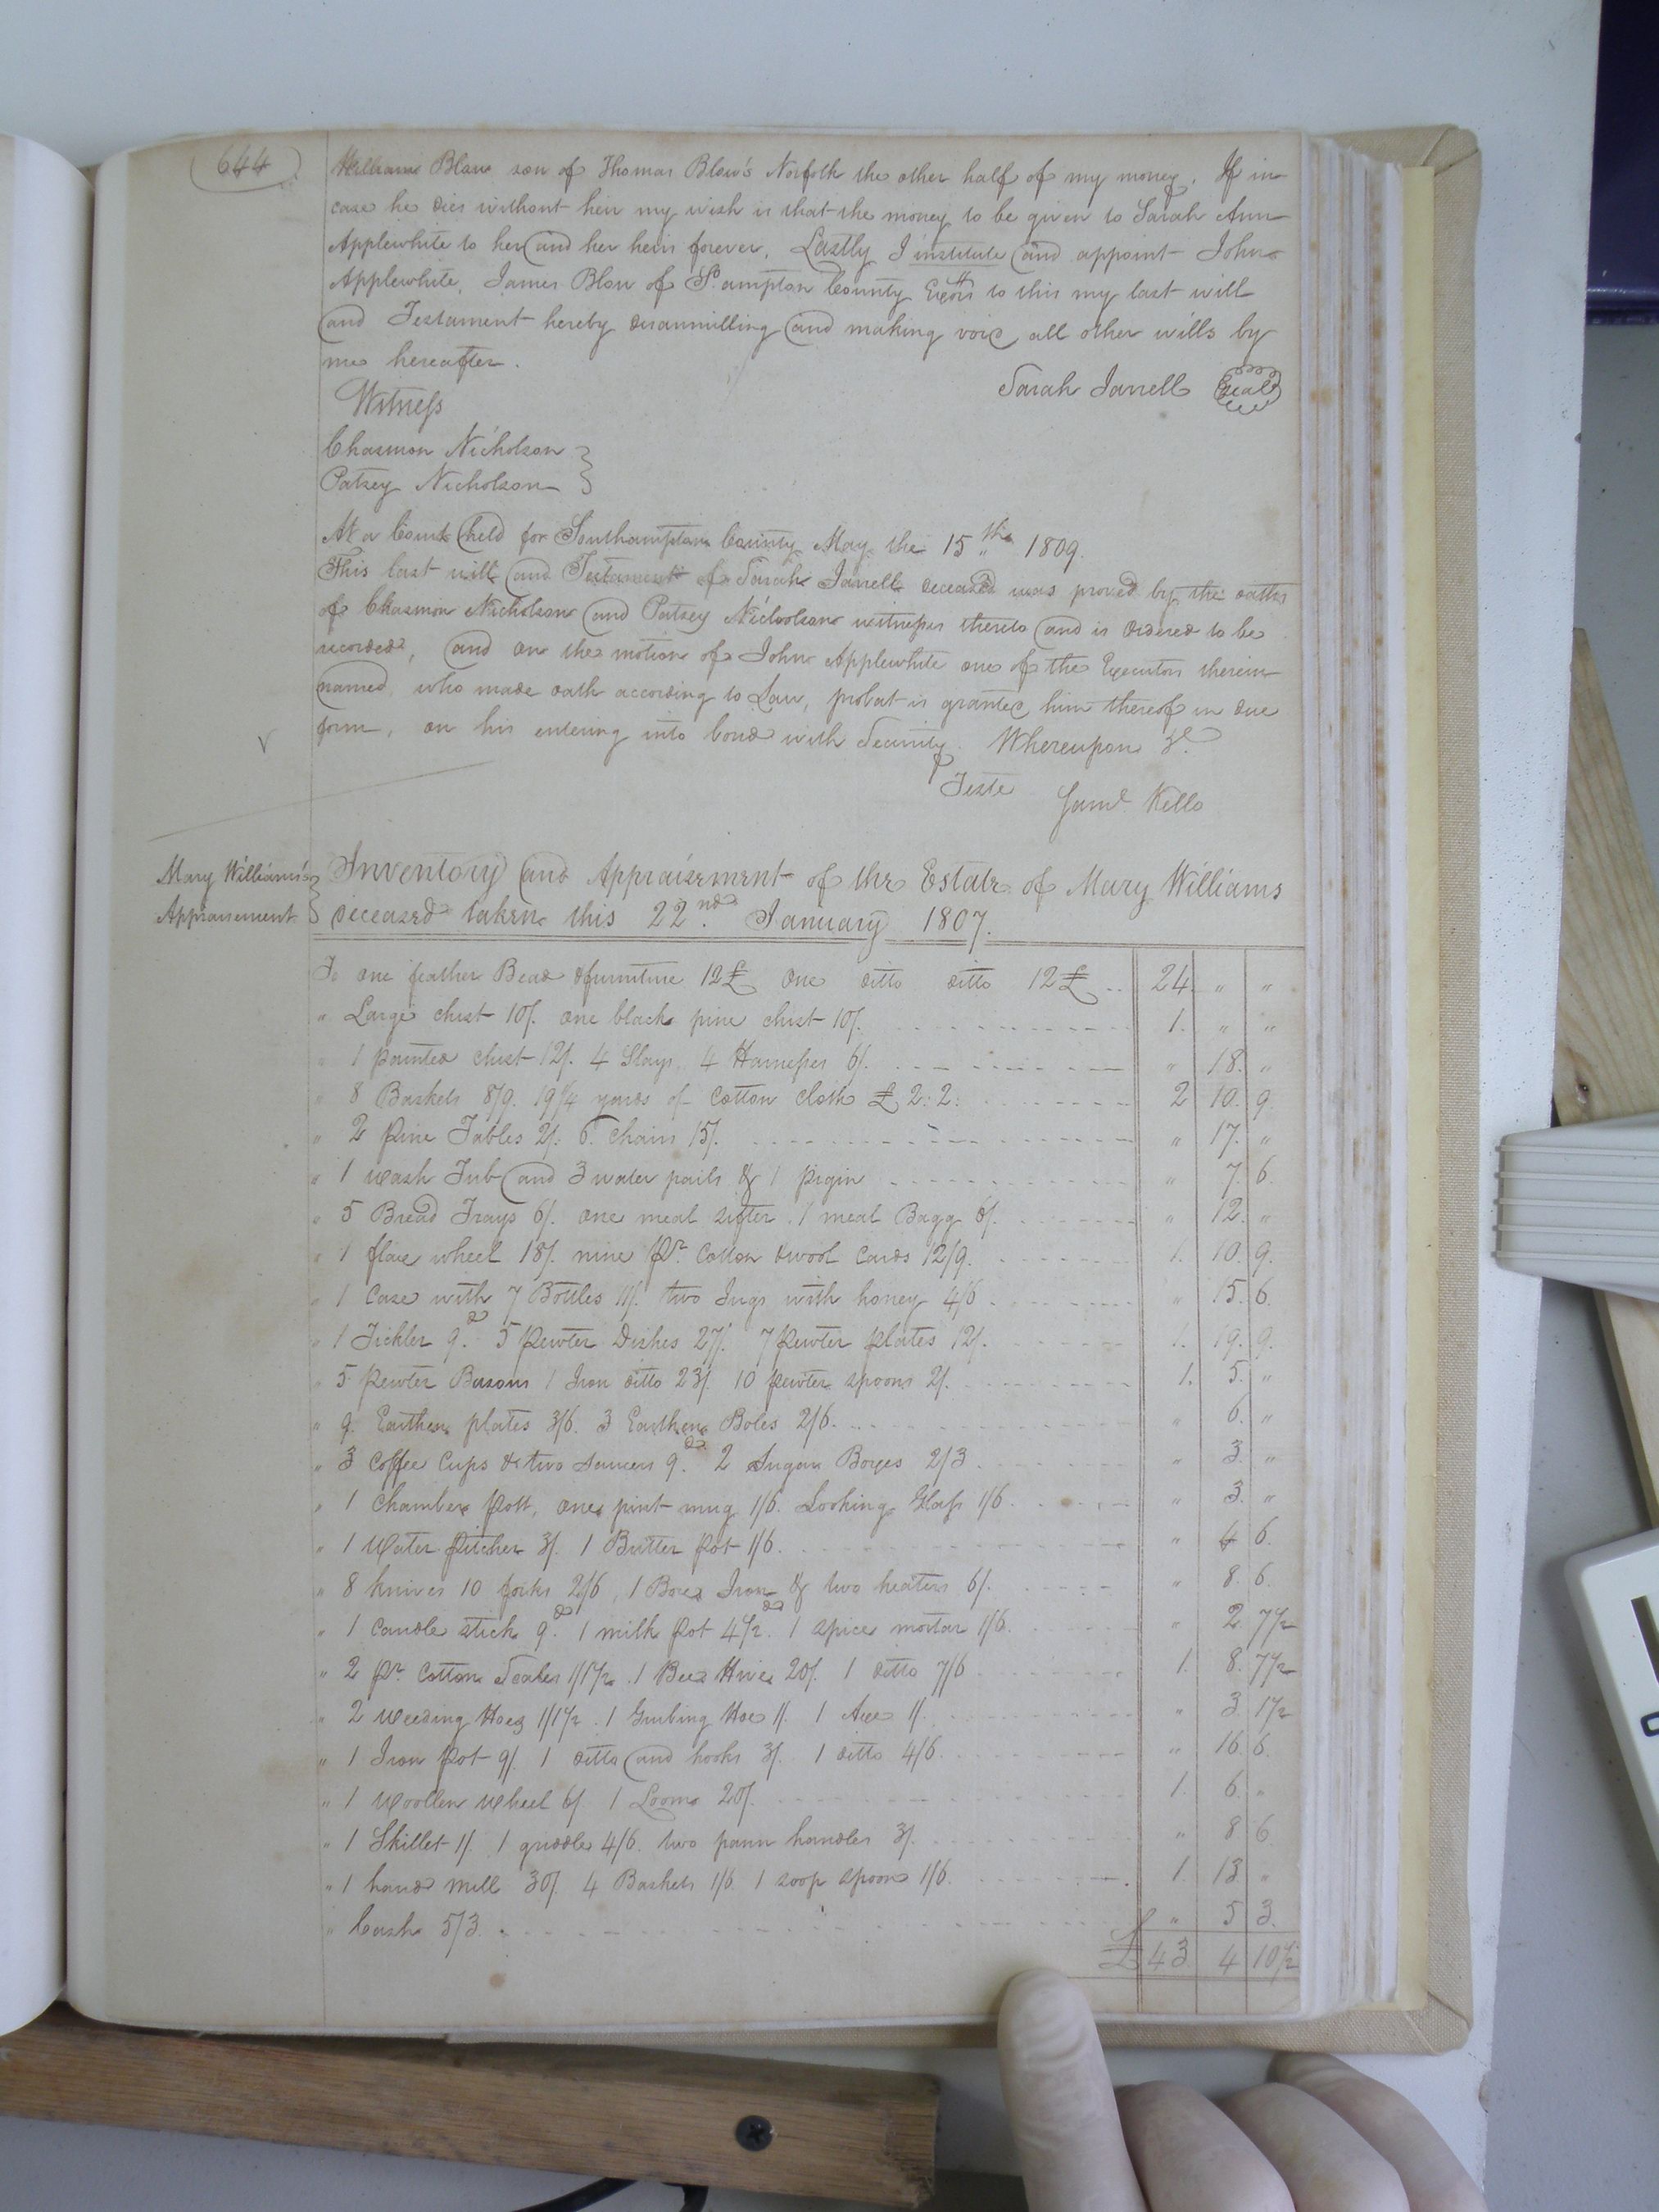 644
William Blow son of Thomas Blow's Norfolk the other half of my money. If in
case he dies without heir my wish is that the money to be given to Sarah Ann
Applewhite to her and her heirs forever. Lastly I institute and appoint John
Applewhite, James Blow of S.ampton County Exors to this my last will
and Testament hereby disannulling and making void all other wills by
me hereafter.
Sarah Jarrell Seal
Witness
Chasmon Nicholson
Patsey Nicholson
At a Court held for Southampton County May the 15th 1809.
This last will and Testament of Sarah Jarrell deceased was proved by the oaths
of Chasmon Nicholson and Patsey Nicholson witnesses thereto and is Ordered to be
recorded, and on the motion of John Applewhite one of the Executors therein
named who made oath according to Law, probat is granted him thereof in due
form, on his entering into bond with Security. Whereupon &c.
Teste Saml Kello
Mary Williams's
Appraisement
Inventory and Appraisement of the Estate of Mary Williams
deceased taken this 22nd January 1807.
To one feather Bead & furniture 12£ One ditto ditto 12£ .. 24. " "
" Large chest 10/. one black pine chest 10/. 1. " "
" 1 painted chest 12/. 4 Slays, 4 Harnesses 6/. " 18. "
" 8 Baskets 8/9. 19 1/4 yards of Cotton cloth £ 2:2: 2 10. 9
" 2 Pine Tables 2/: 6. Chairs 15/. " 17. "
" 1 wash Tub and 3 water pails & 1 pigin " 7. 6.
" 5 Bread Trays 6/. one meal sifter. 1 meal Bagg 6/. " 12. "
" 1 flax wheel 18/. nine pr. Cotton & wool Cards 12/9. 1. 10. 9.
" 1 Case with 7 Bottles 11/. two Jugs with honey 4/6. " 15. 6
" 1 Tickler 9d. 5 Pewter Dishes 27/. 7 Pewter plates 12/. 1. 19. 9.
" 5 Pewter Basons 1 Iron ditto 23/. 10 pewter spoons 2/. 1. 5. "
" 9. Earthen plates 3/6. 3 Earthen Boles 2/6. " 6. "
" 3 Coffee Cups & two Saucers 9d. 2 Sugar Boxes 2/3 " 3. "
" 1 Chamber Pott, one pint mug 1/6. Looking Glass 1/6. " 3. "
" 1 Water Pitcher 3/. 1 Butter Pot 1/6. " 4 6.
" 8 knives 10 forks 2/6, 1 Box Iron & two heaters 6/. " 8. 6.
" 1 Candle stick 9d. 1 milk Pot 4 1/2d. 1 spice mortar 1/6. " 2. 7 1/2
" 2 Pr. Cotton Scales 1/1 1/2. 1 Bee Hive 20/. 1 ditto 7/6 1. 8. 7 1/2
" 2 Weeding Hoes 1/1 1/2. 1 Grubing Hoe 1/. 1 Axe 1/. " 3. 1 1/2
" 1 Iron Pot 9/. 1 ditto and hooks 3/. 1 ditto 4/6. " 16. 6.
" 1 Woollen Wheel 6/ 1 Loom 20/. 1. 6. "
" 1 Skillet 1/. 1 griddle 4/6. two pann handles 3/. " 8 6.
" 1 hand mill 30/. 4 Baskets 1/6 1 soop spoon 1/6. 1. 13. "
" Cash 5/3. " 5 3.
£ 43 4 10 1/2